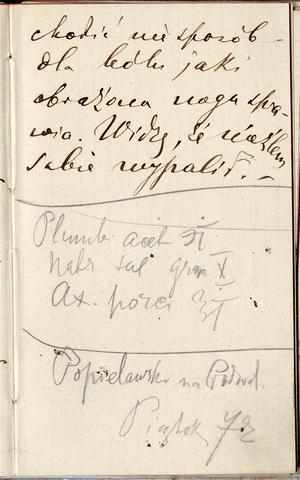 chodzić nie sposób –
dla bólu jaki
obrażona noga spra-
wia. Widzę, że
sobie wypalił. –
Plumbi acet ʒI
Natr sal gran X
Ax. porci ʒI
Popielawski na Podwal.
Piątek 72